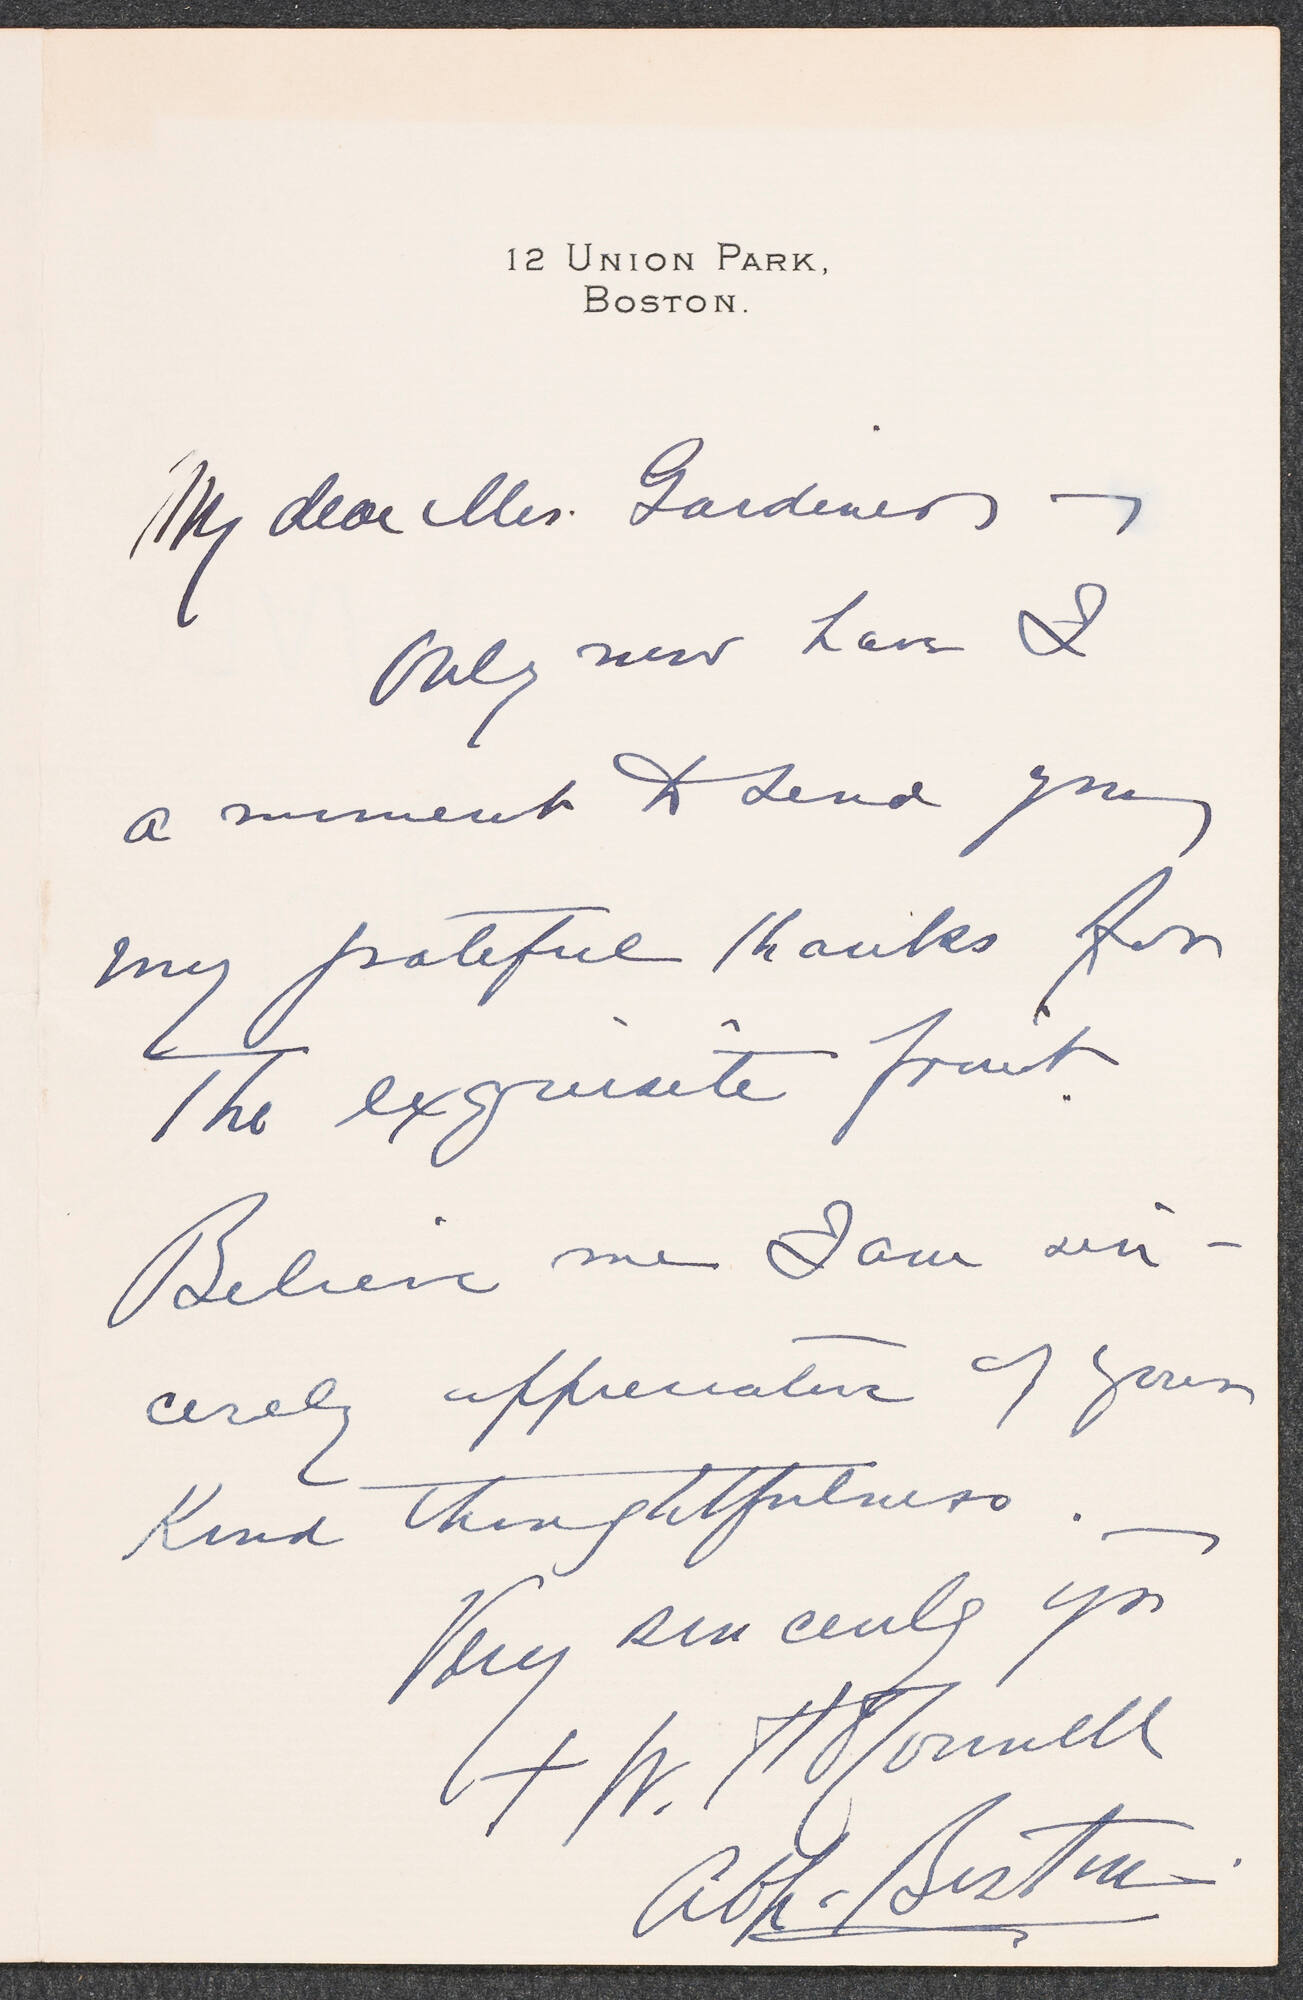 12 Union Park,
Boston.
My dear Mrs. Gardiner —
Only now have I
a moment to send you
my grateful thanks for
the exquisite fruit.
Believe me I am sin-
cerely appreciative of your
kind thoughtfulness. —
Very sincerely yrs
+ W. H O'Connell
Abp. Boston.